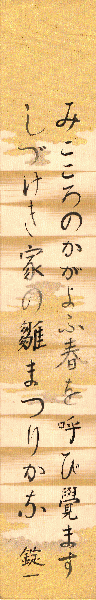 みこころのかがよふ春を呼び覺ます
しづけき家の雛まつりかな
錠一